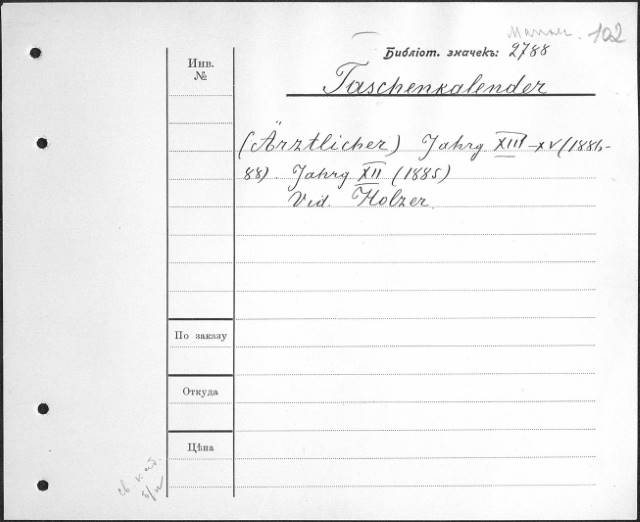 102
Библіот. значекъ: 2788
Taschenkalender
Инв.
№
(Ärztlicher) Jahrg XIII-XV (1886-
88). Jahrg XII (1885)
Vid. Holzer.
По заказу
Откуда
Цѣна